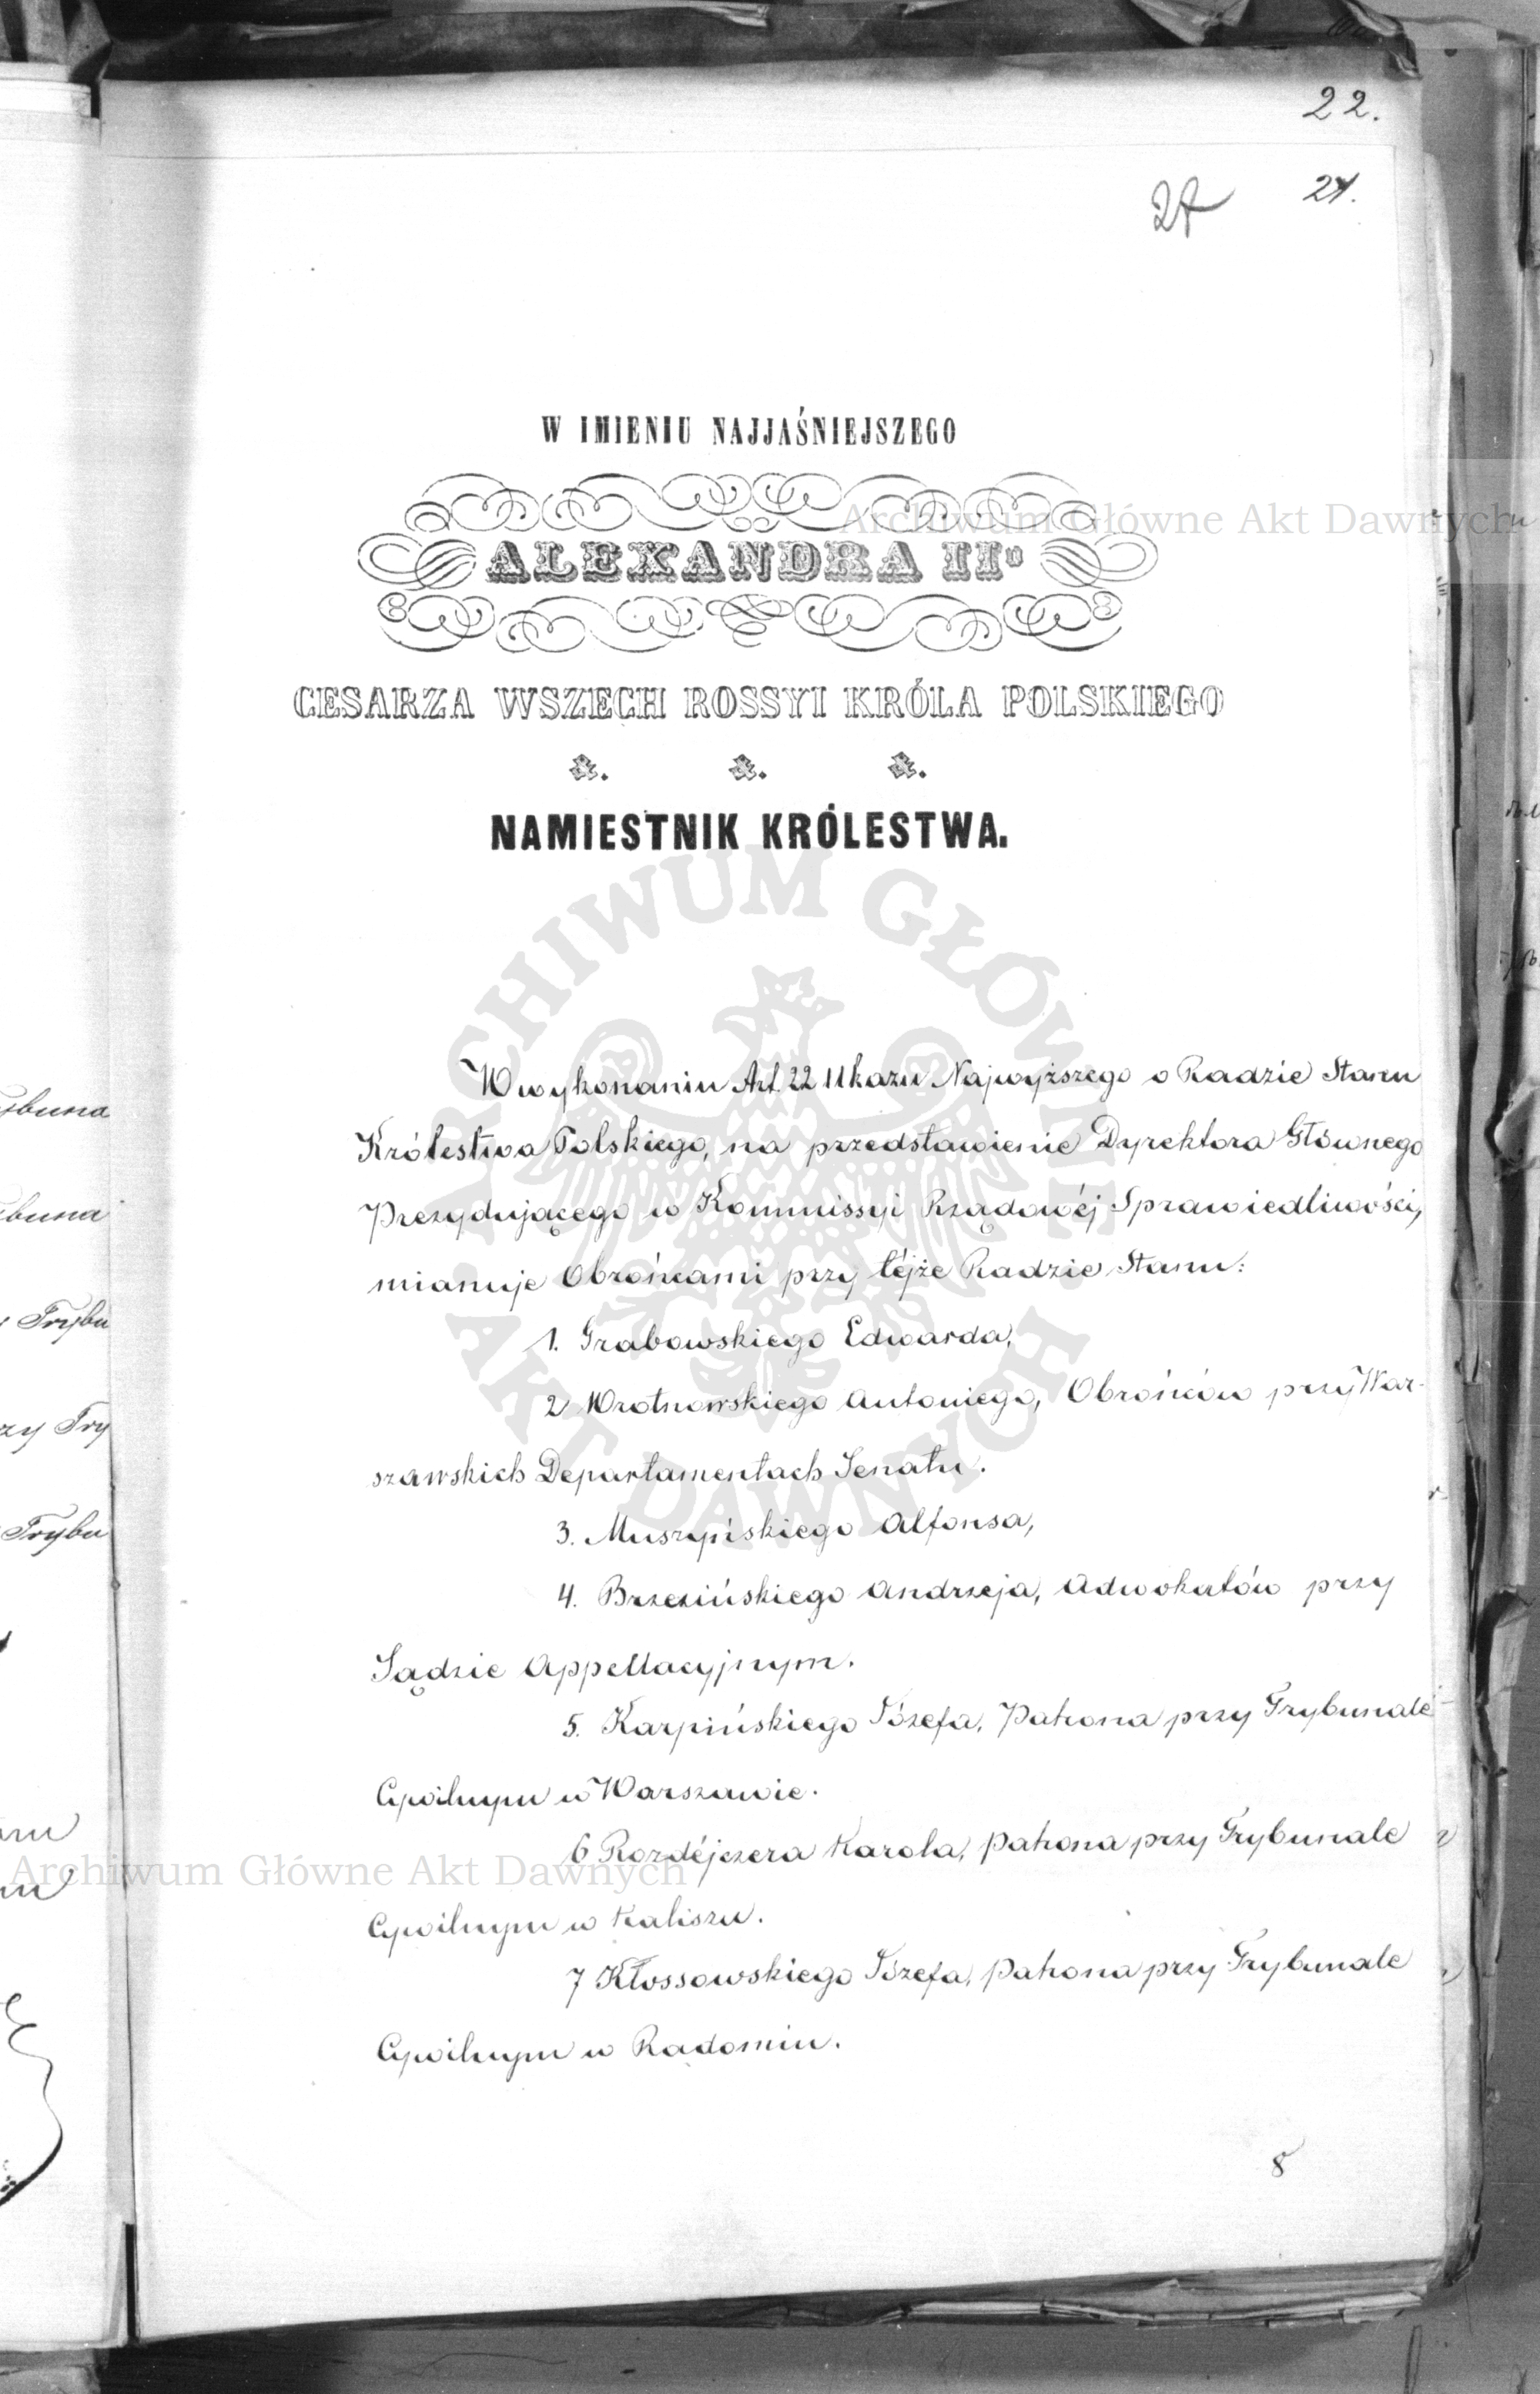 22.
24.
27
W IMIENIU NAJJAŚNIEJSZEGO
ALEXANDRA IIgo
CESARZA WSZECH ROSSYI KRÓLA POLSKIEGO
&. &. &.
NAMIESTNIK KRÓLESTWA.
W wykonaniu Art. 22 Ukazu Najwyższego o Radzie Stanu
Królestwa Polskiego, na przedstawienie Dyrektora Głównego
Prezydującego w Kommissyi Rządowéj Sprawiedliwości,
mianuje Obrońcami przy téjże Radzie Stanu:
1. Grabowskiego Edwarda,
2 Wrotnowskiego Antoniego, Obrońców przy War-
szawskich Departamentach Senatu.
3. Muszyńskiego Alfonsa,
4. Brzezińskiego Andrzeja, Adwokatów przy
Sądzie Appellacyjnym.
5. Karpińskiego Józefa, Patrona przy Trybunale
Cywilnym w Warszawie.
6 Rozdéjczera Karola, Patrona przy Trybunale
Cywilnym w Kaliszu.
7 Kłossowskiego Józefa, Patrona przy Trybunale
Cywilnym w Radomiu.
8
Archiwum Główne Akt Dawnych
Archiwum Główne Akt Dawnych
ARCHIWUM GŁÓWNE AKT DAWNYCH